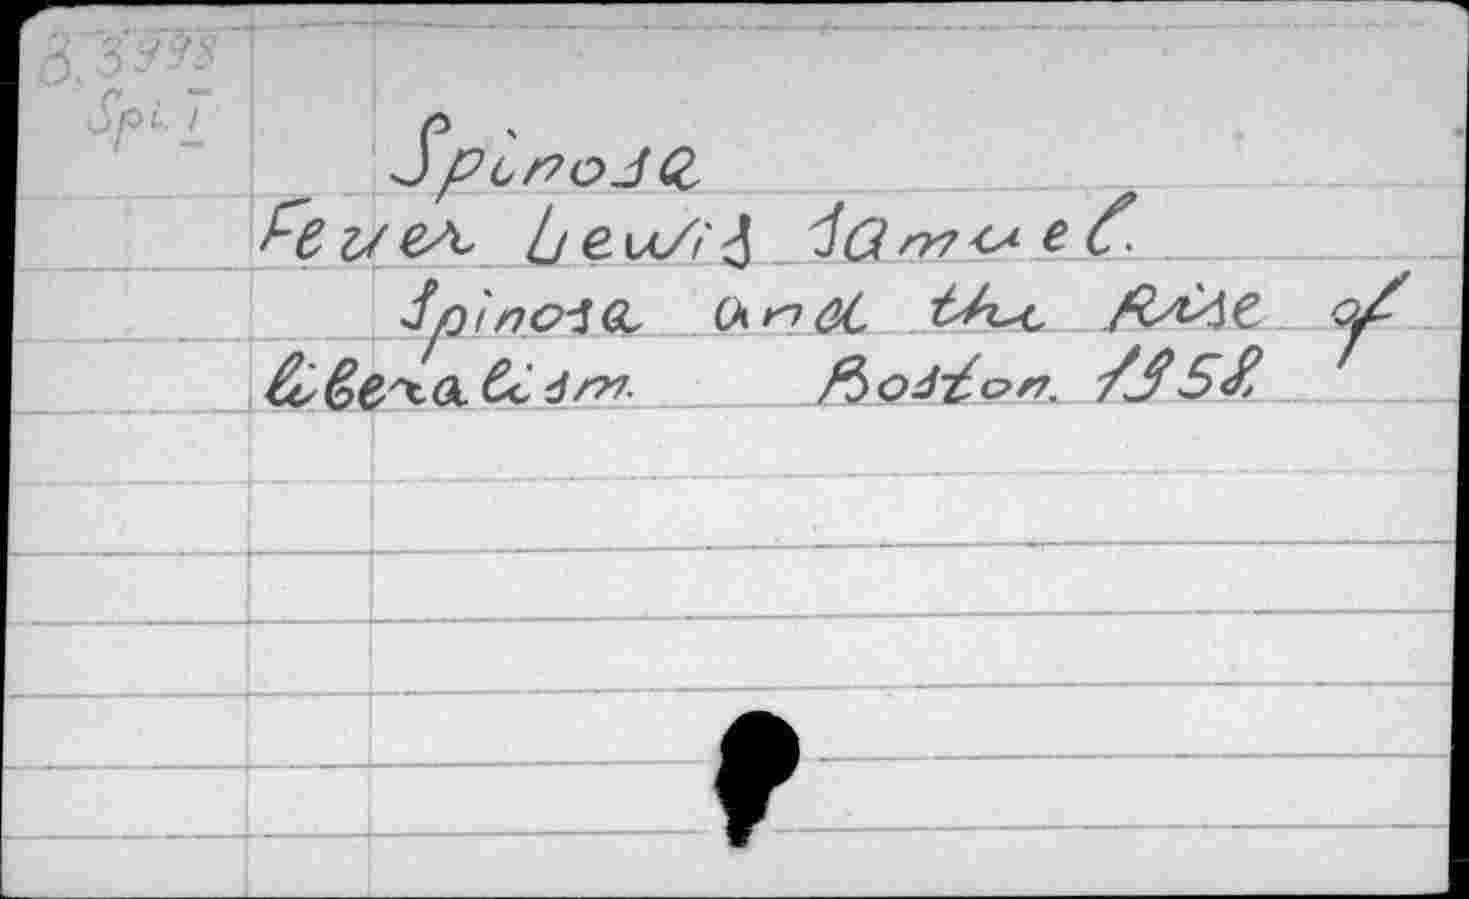 3.3998
Spi. I
Spinosa
Feuer Lewis Samuel.
Spinosa and the Rise of
Liberalism. Boston. 1958